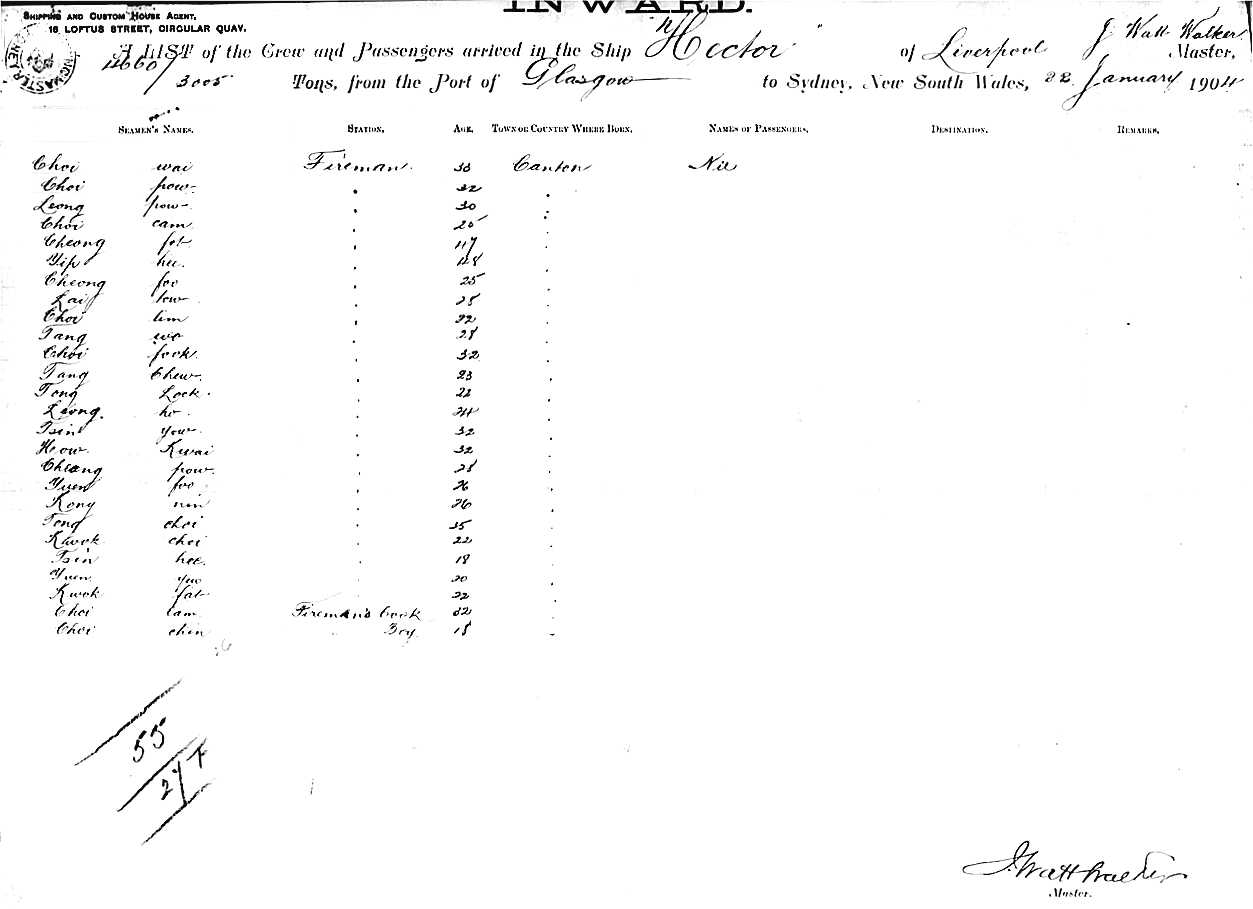 INWARD.
SHIPPING AND CUSTOM HOUSE AGENT,
16 LOFTUS STREET, CIRCULAR QUAY.
A LIST of the Crew and Passengers arrived in the Ship "Hector" of Liverpool J Watt Walker Master,
4660/3005 Tons, from the Port of Glasgow to Sydney, New South Wales, 22 January 1904
SEAMEN'S NAMES. STATION, AGE, TOWN OR COUNTRY WHERE BORN, NAMES OF PASSENGERS, DESTINATION. REMARKS,
Choi wai Fireman 38 Canton Nil
Choi pow 32
Leong pow 30
Choi cam 25
Cheong fat 47
Yip hee 48
Cheong foo 25
Lai low 28
Choi lim 22
Tang wo 28
Choi fook 32
Tang Chew 23
Tong Lock 22
Leong ho 24
Tsin you 32
How Kwai 32
Cheang pow 28
Yuen foo 26
Kong nin 26
Tong choi 35
Kwok choi 22
Tsin hee 18
Yuen yu 20
Kwok fat 22
Choi lam Fireman's Cook 32
Choi chin " Boy 18
26
55
27
J. Watt Walker
Master.